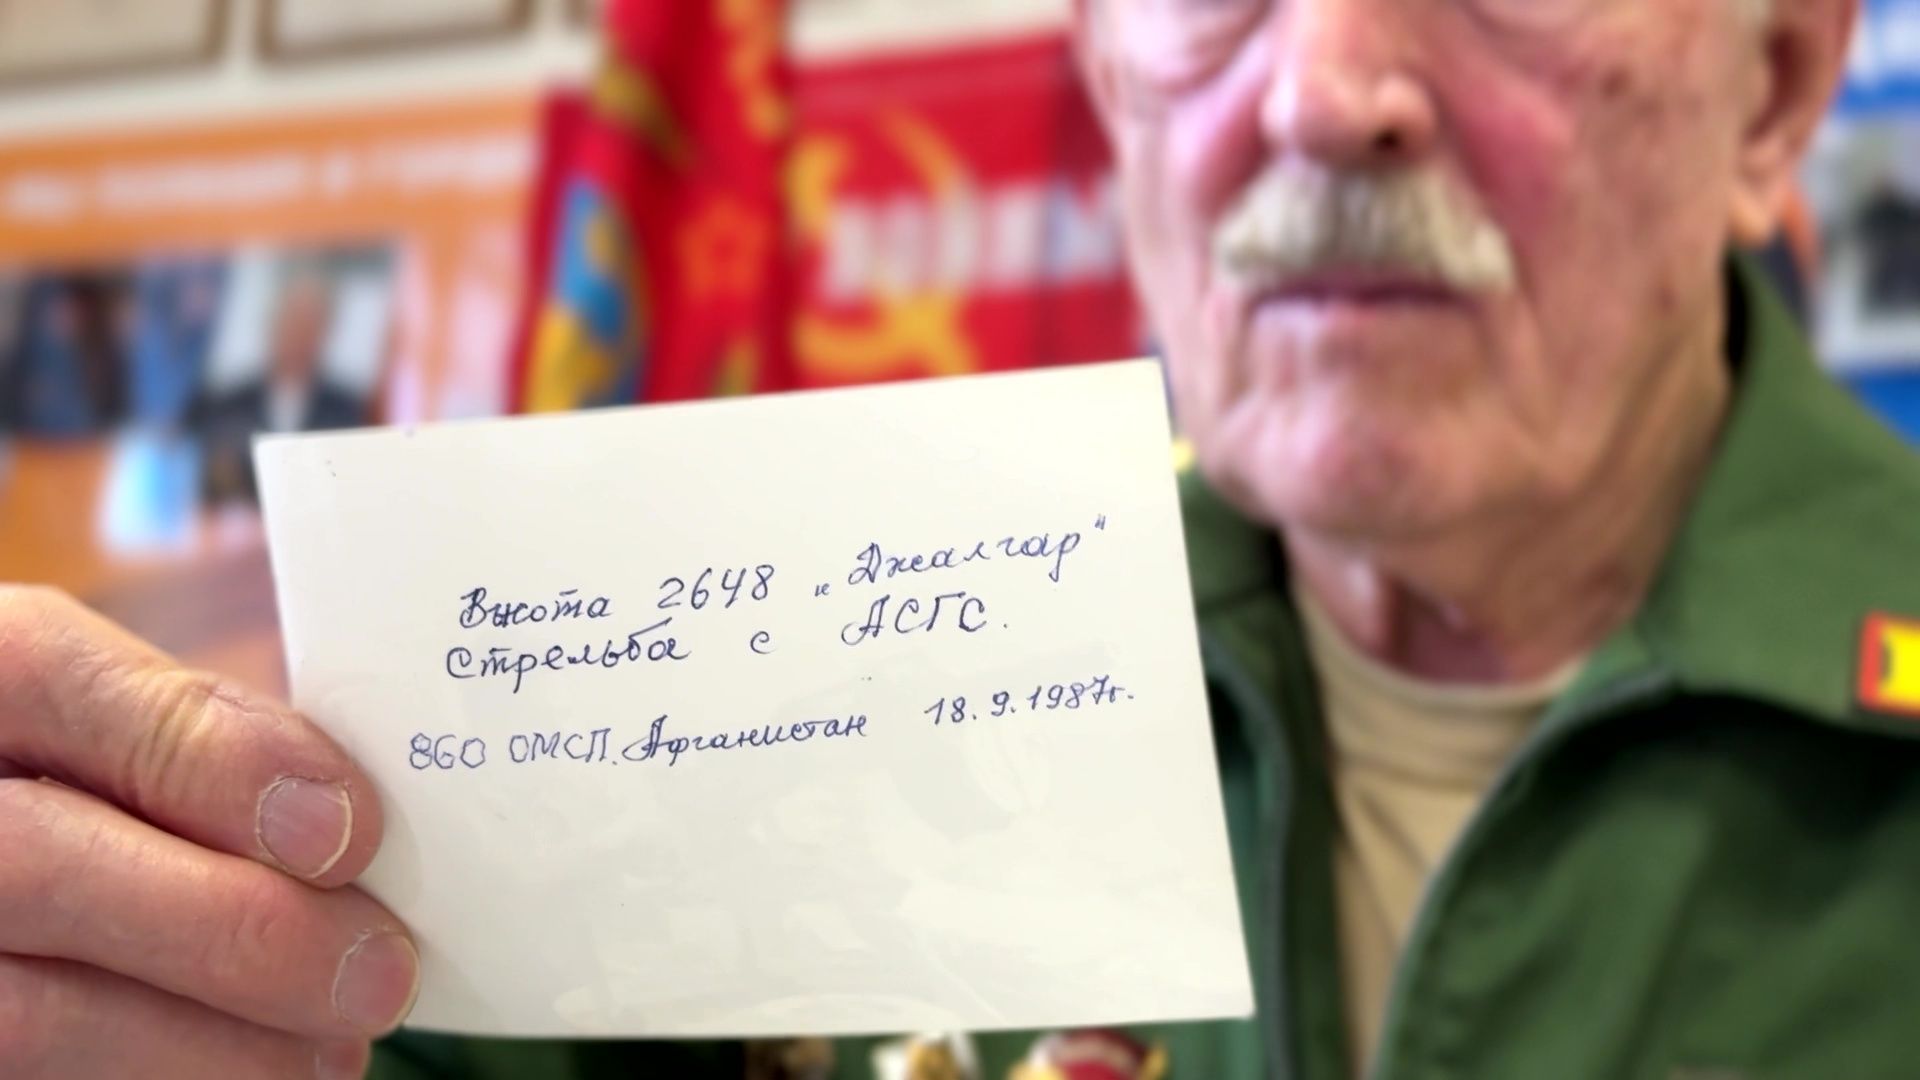 Высота 2648 „Джалгар"
Стрельба с АСГС.
860 ОМСП. Афганистан 18.9.1987г.